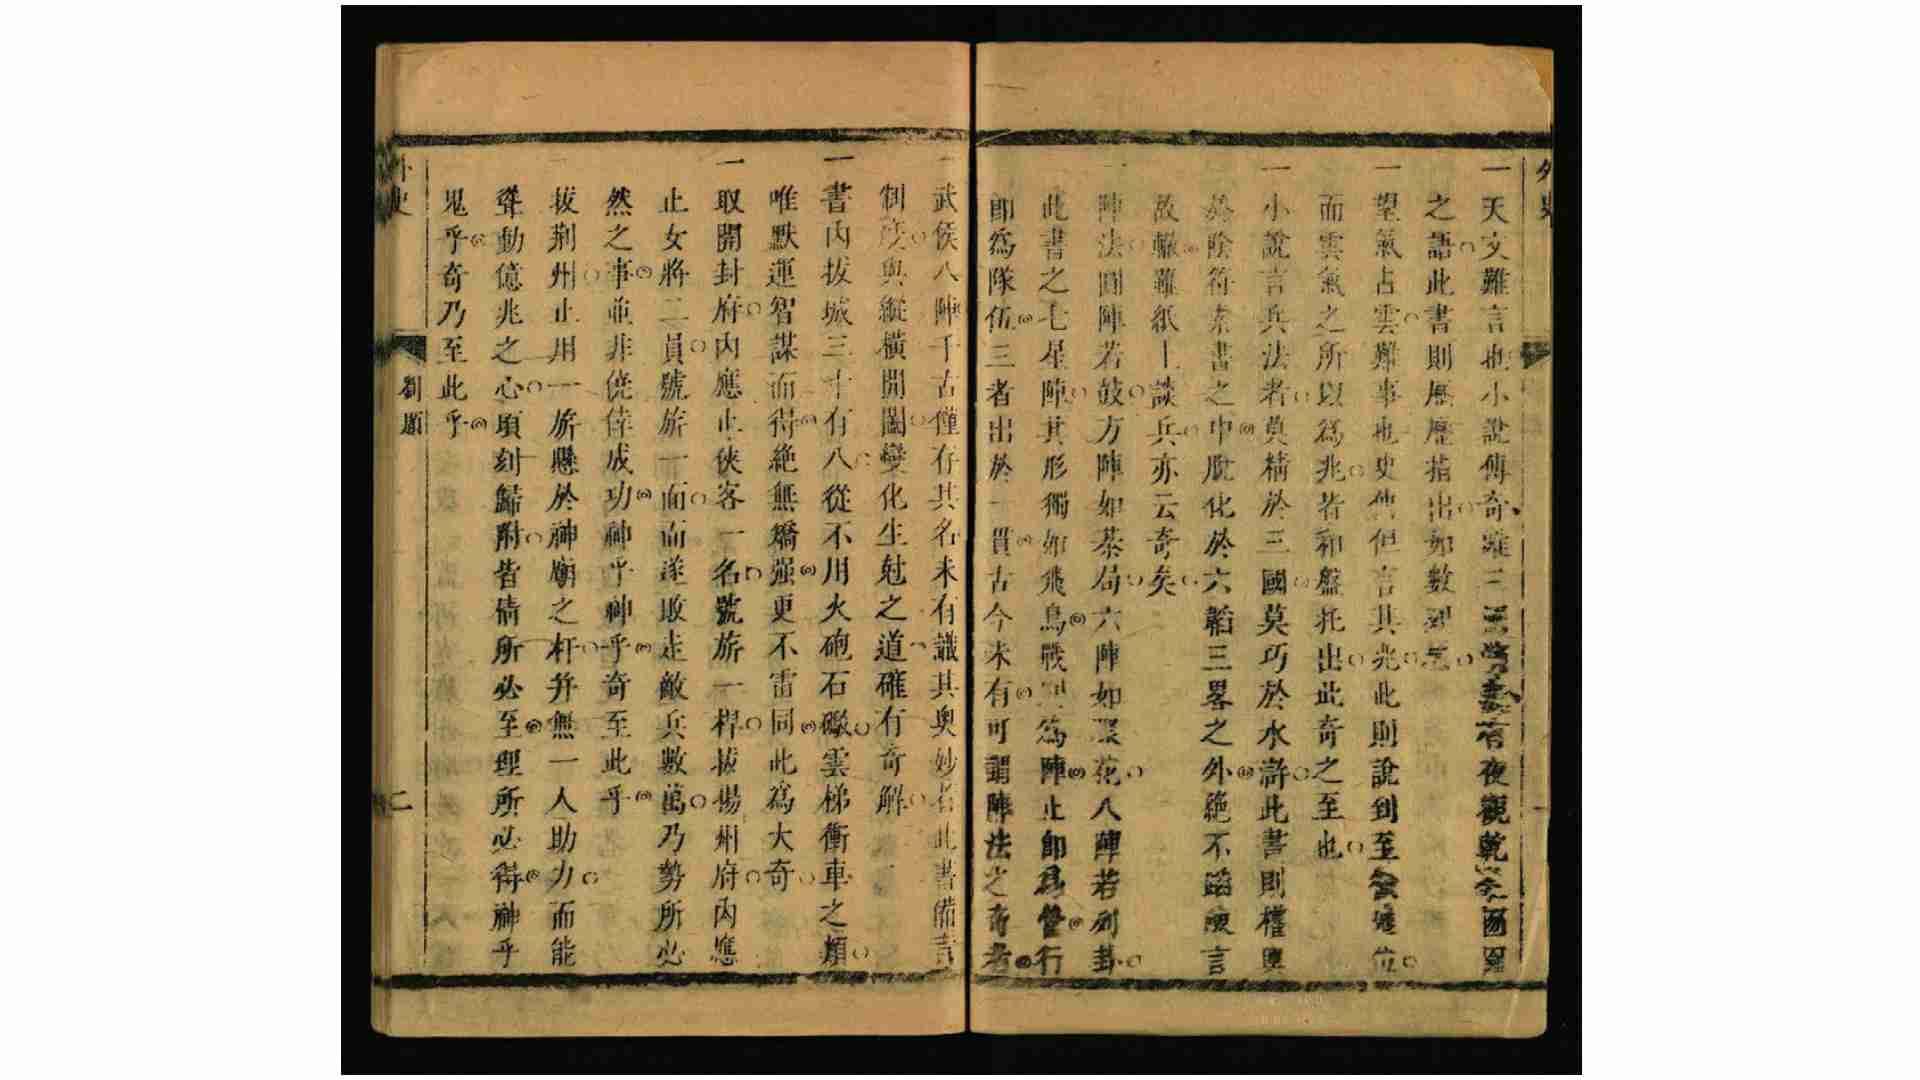 外史
一天文難言也小說傳奇唯三國演義有夜觀乾象圖星
之語此書則歷歷指出如數列眉
一望氣占雲難事也史傳但言其兆此則說到至
而雲氣之所以為兆者和盤托出此奇之至也
一小說言兵法者莫精於三國莫巧於水滸此書則權輿
於陰符素書之中脫化於六韜三畧之外絶不蹈陳言
故轍雖紙上談兵亦云奇矣
一陣法圓陣若鼓方陣如棊局六陣如環花八陣若列卦
此書之七星陣其形獨如飛鳥戰則為陣止即為營行
即為隊伍三者出於一貫古今未有可謂陣法之奇者
一武侯八陣千古僅存其名未有識其奧妙者此書備言
制度與縱橫開闔變化生尅之道確有奇解
一書內拔城三十有八從不用火砲石礮雲梯衝車之類
唯默運智謀而得絶無矯强更不雷同此為大奇
一取開封府內應止俠客一名號旂一桿拔揚州府內應
止女將二員號旂一面而遂敗走敵兵數萬乃勢所必
然之事並非僥倖成功神乎神乎奇至此乎
一拔荆州止用一旂懸於神廟之杆并無一人助力而能
聳動億兆之心頃刻歸附皆情所必至理所必得神乎
鬼乎奇乃至此乎
外史
劉題
二